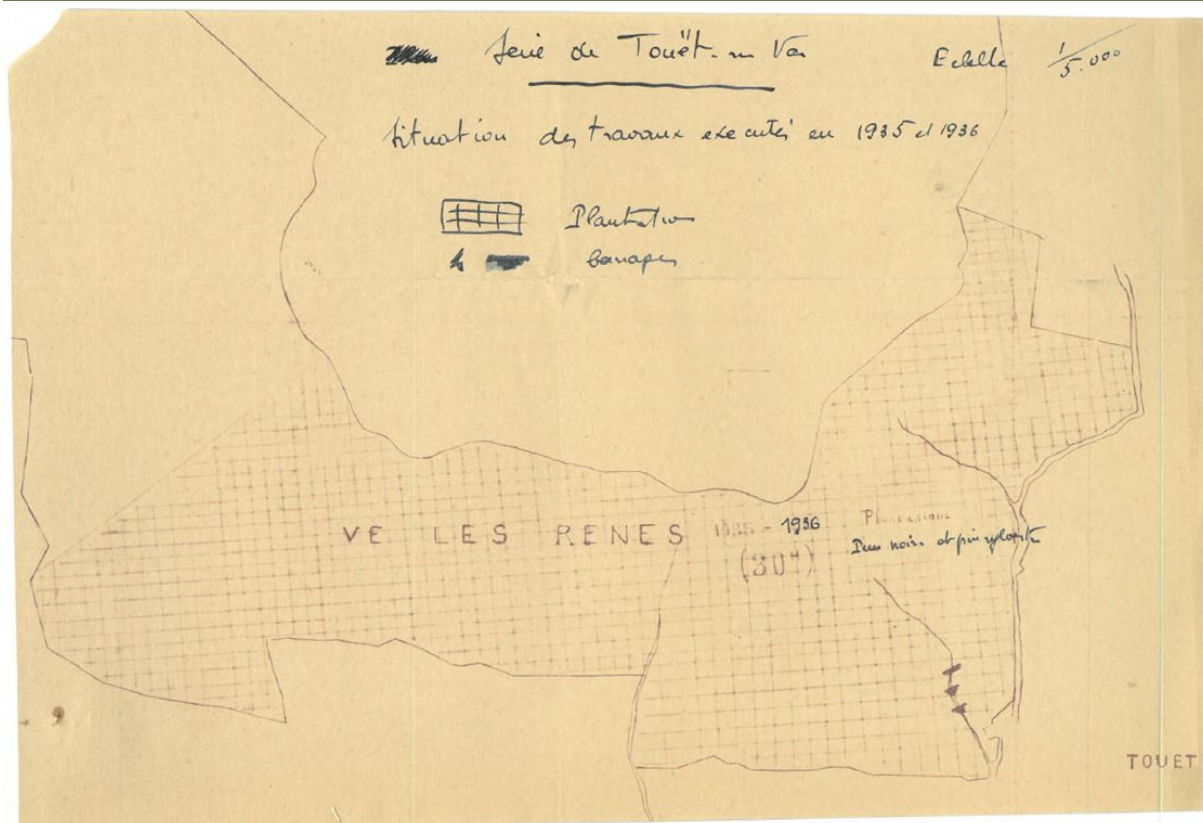 Série de Touët-sur Var
Echelle 1/5.000
Situation des travaux executés en 1935 et 1936
Plantation
barrages
VE LES RENES 1935 - 1936 Plantations
(30H) Pins noirs et pin sylvestre
TOUET